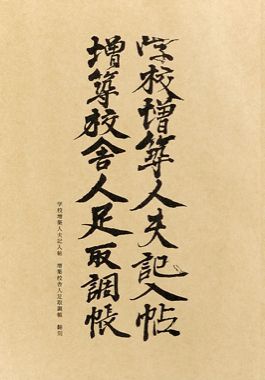 学校增築人夫記入帖
增築校舎人足取調帳
学校増築人夫記入帖 増築校舎人足取調帳 翻刻